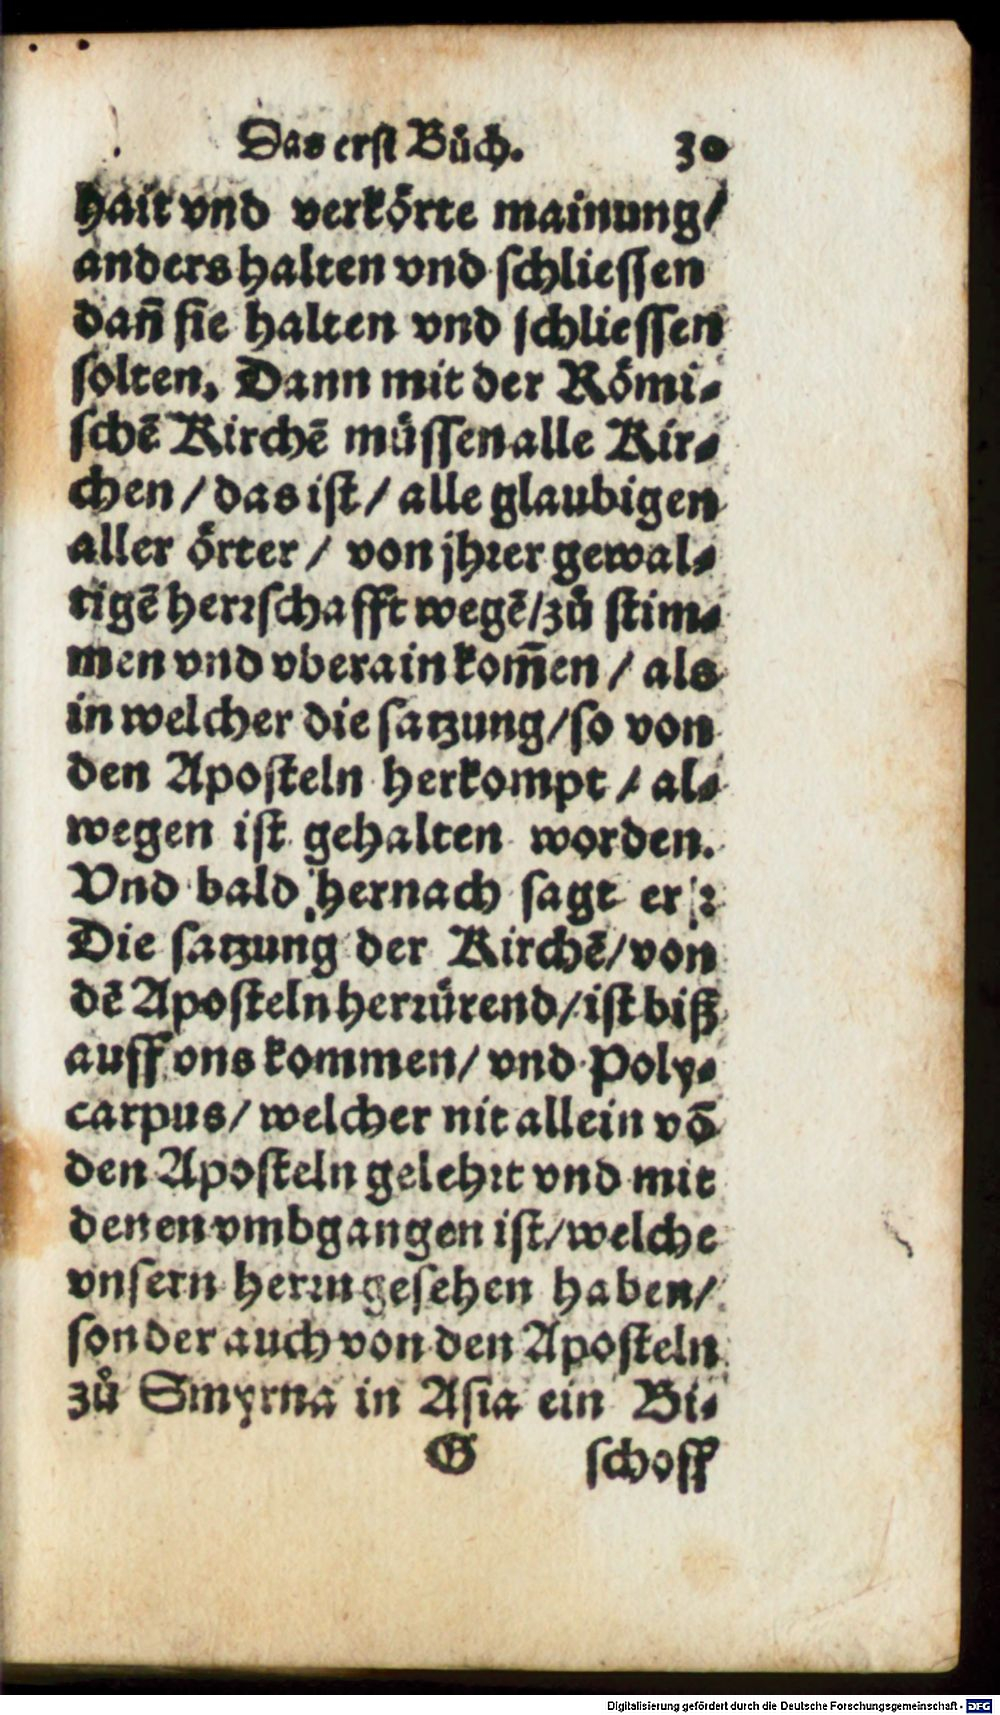 Das erst Bůch. 30
hait vnd verkörte mainung/
anders halten vnd schliessen
dañ sie halten vnd schliessen
solten. Dann mit der Römi-
schē Kirchē müssen alle Kir-
chen / das ist / alle glaubigen
aller örter / von jhrer gewal-
tigē herrschafft wegē/zů stim-
men vnd vberain kom̃en / als
in welcher die satzung/so von
den Aposteln herkompt / al-
wegen ist gehalten worden.
Vnd bald hernach sagt er :
Die satzung der Kirchē/von
dē Aposteln herrürend/ist biß
auff vns kommen/ vnd Poly-
carpus/ welcher nit allein vō
den Aposteln gelehrt vnd mit
denen vmbgangen ist/welche
vnsern herrn gesehen haben/
sonder auch von den Aposteln
zů Smyrna in Asia ein Bi-
G schoff
Digitalisierung gefördert durch die Deutsche Forschungsgemeinschaft - DFG